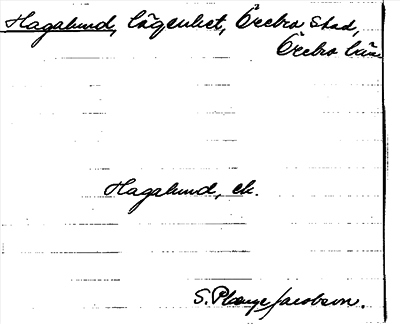 Hagalund, lägenhet, Örebro stad,
Örebro län
Hagalund, ek.
S. Plænge Jacobson.